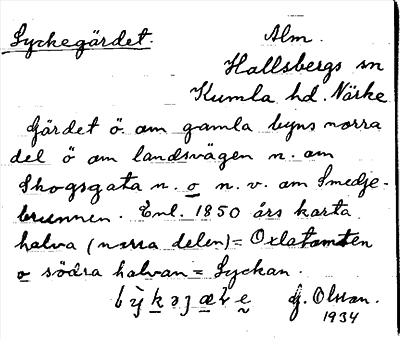 Lyckegärdet. Alm.
Hallsbergs sn
Kumla hd. Närke
Gärdet ö. om gamla byns norra
del ö om landsvägen n. om
Skogsgata n. o n. v. om Smedje-
brunnen. Enl. 1850 års karta
halva (norra delen) = Oxlatomten
o södra halvan = Lyckan.
G. Olsson.
1934